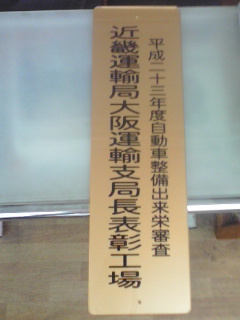 平成二十三年度自動車整備出来栄審査
近畿運輸局大阪運輸支局長表彰工場